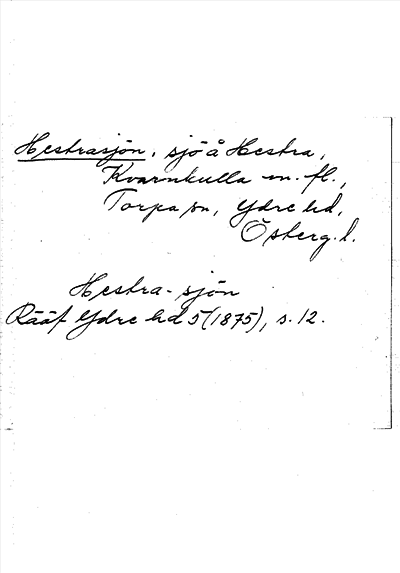 Hestrasjön, sjö å Hestra,
Kvarnkulla m. fl.,
Torpa sn, Ydre hd,
Östergl. l.
Hestra-sjön
Rääf Ydre hd 5 (1875), s. 12.